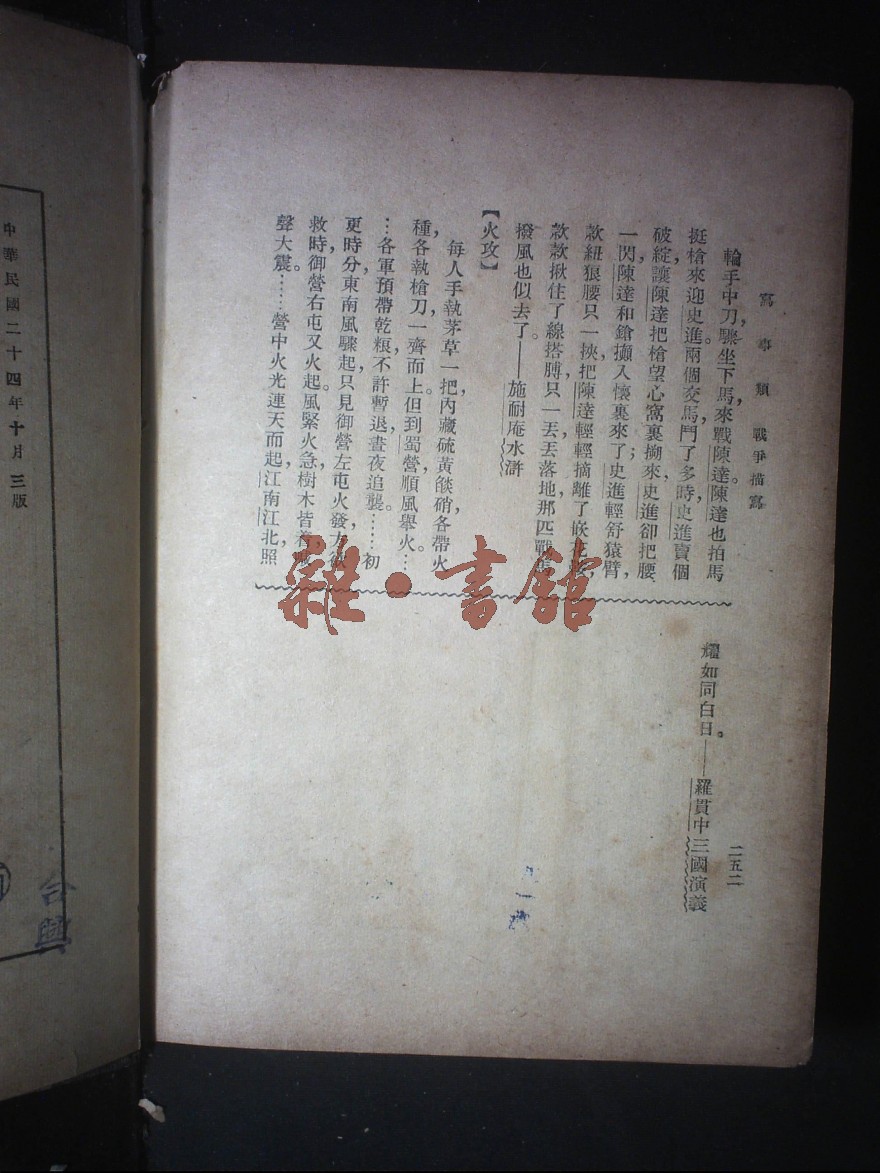 寫事類 戰爭描寫
輪手中刀，驟坐下馬，來戰陳達。陳達也拍馬
挺槍來迎史進。兩個交馬鬥了多時，史進賣個
破綻，讓陳達把槍望心窩裏搠來，史進卻把腰
一閃，陳達和鎗攧入懷裏來了；史進輕舒猿臂，
款紐狼腰，只一挾，把陳達輕輕摘離了嵌花鞍，
款款揪住了線搭膊，只一丟，丟落地，那匹戰馬
撥風也似去了。——施耐庵水滸
【火攻】
每人手執茅草一把，內藏硫黃燄硝，各帶火
種，各執槍刀，一齊而上。但到蜀營，順風舉火。…
…各軍預帶乾粮，不許暫退，晝夜追襲。……初
更時分，東南風驟起，只見御營左屯火發，方欲
救時，御營右屯又火起。風緊火急，樹木皆着，喊
聲大震。……營中火光連天而起，江南江北，照
耀如同白日。——羅貫中三國演義
二五二
中華民國二十四年十月三版
合興
雜·書館